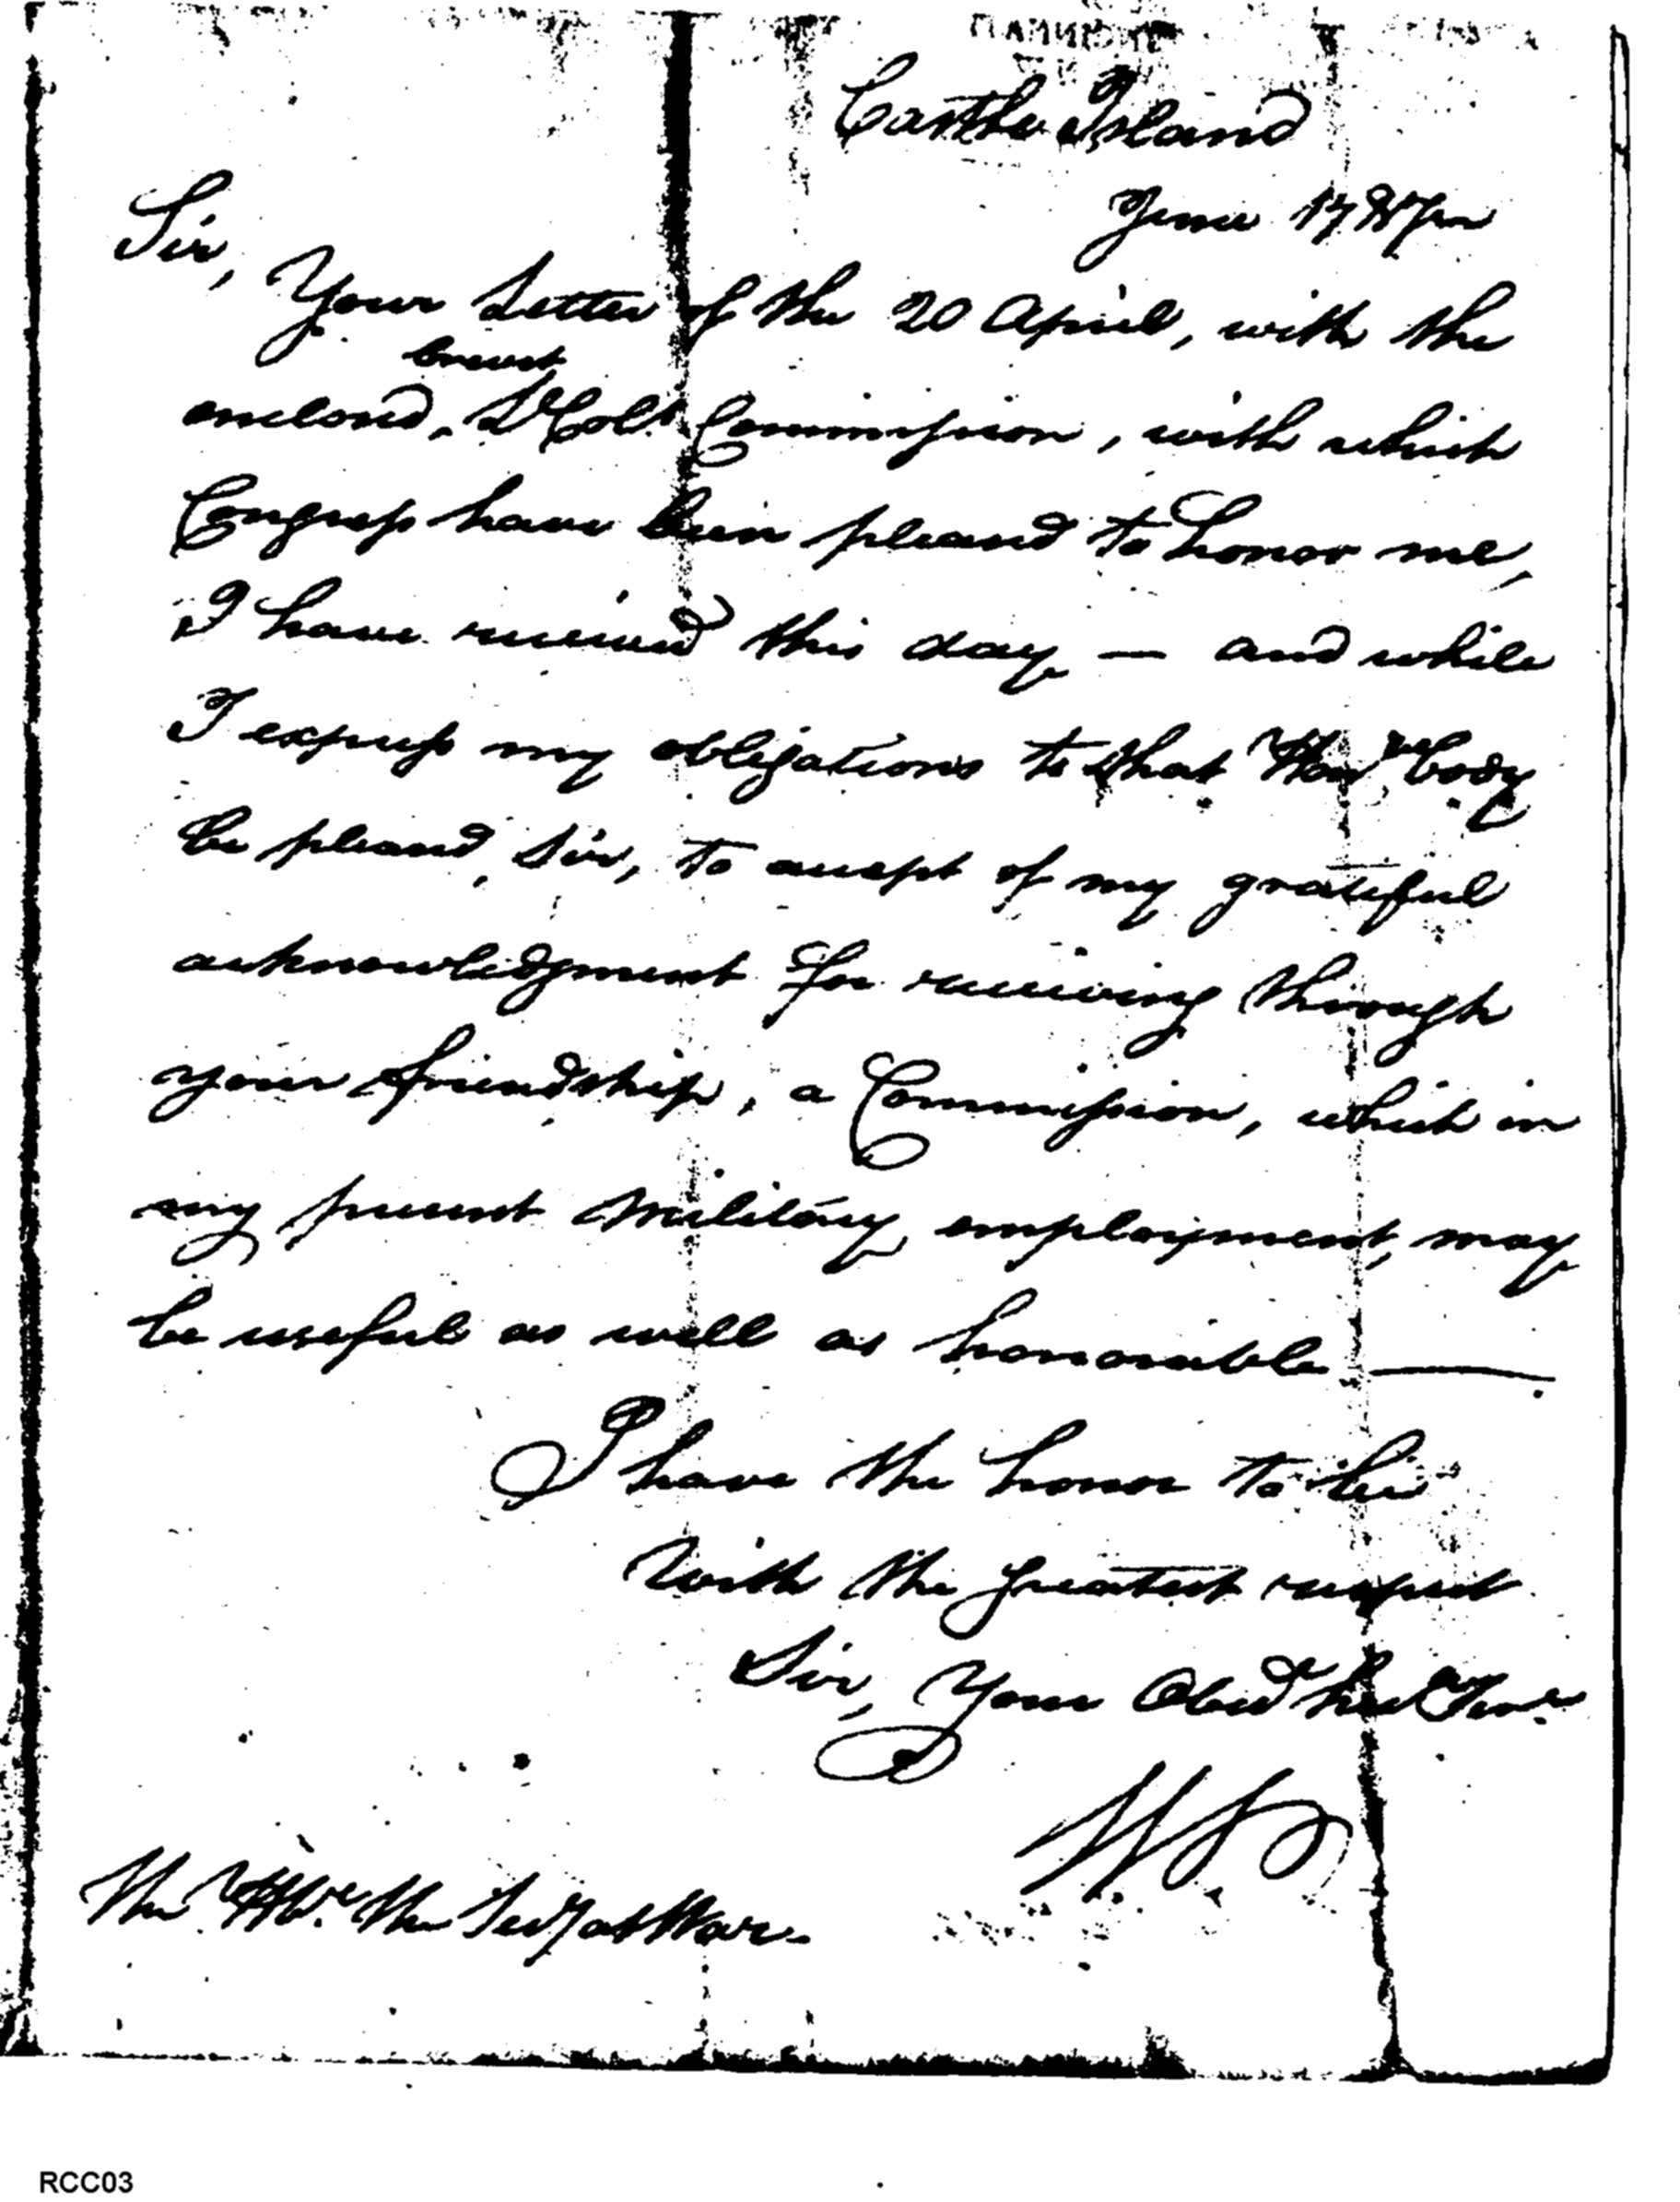 Castle Island
June 1787
Sir,
Your Letter of the 20 April, with the
brevet
enclosed, Lt Colt Commission, with which
Congress have been pleased to honor me,
I have received this day — and while
I express my obligations to that Honble body
be pleased, Sir, to accept of my grateful
acknowledgment for receiving through
your friendship, a Commission, which in
my present Military employment, may
be useful as well as honorable —
I have the honor to be
With the greatest respect
Sir, Your Obed
The the Secy at War.
RCC03